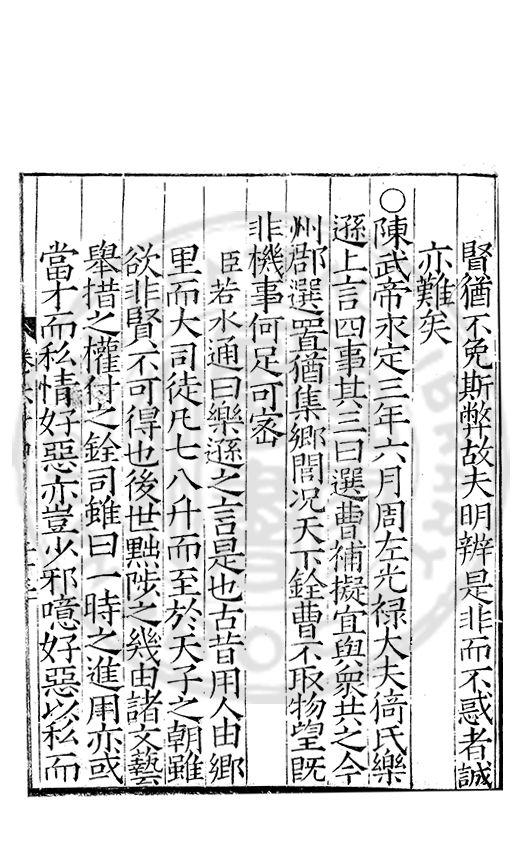 賢猶不免斯弊故夫明辨是非而不惑者誠
亦難矣
〇陳武帝永定三年六月周左光禄大夫倚氏樂
遜上言四事其三曰選曹補擬宜與衆共之今
州郡選置猶集鄉閭况天下銓曹不取物望旣
非機事何足可密
臣若水通曰樂遜之言是也古昔用人由鄉
里而大司徒凡七八升而至於天子之朝雖
欲非賢不可得也後世黜陟之幾由諸文藝
舉措之權付之銓司雖曰一時之進用亦或
當才而私情好惡亦豈少邪噫好惡以私而